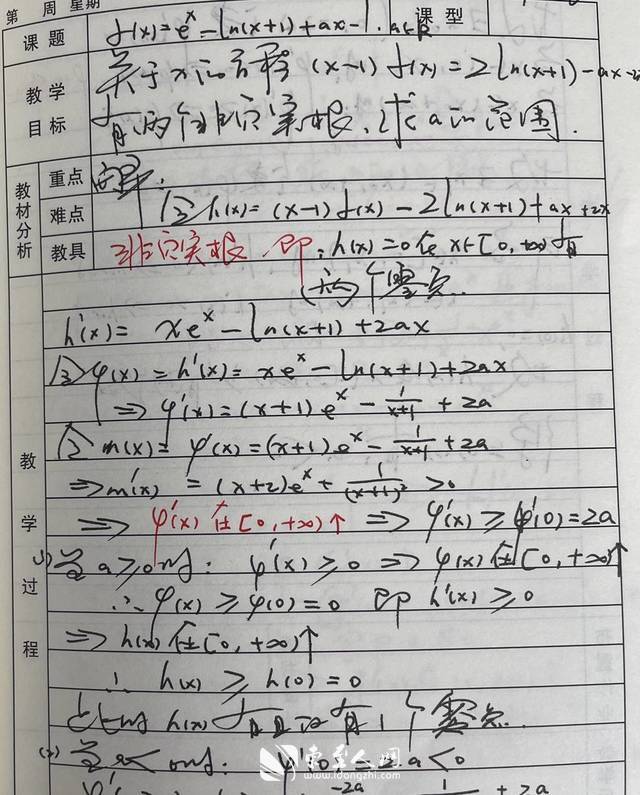 第 周 星期
课题 f(x)=e^x-ln(x+1)+ax-1. a∈R 课型
教学目标 关于x的方程 (x-1)f(x)=2ln(x+1)-ax-2x
有两个非负实根,求a的范围.
教材分析
重点
难点 令h(x)=(x-1)f(x)-2ln(x+1)+ax+2x
教具 非负实根.即:h(x)=0在x∈[0,+∞)有
两个零点.
h'(x)= xe^x-ln(x+1)+2ax
令φ(x)=h'(x)=xe^x-ln(x+1)+2ax
⇒φ'(x)=(x+1)e^x-1/(x+1)+2a
令m(x)=φ'(x)=(x+1)e^x-1/(x+1)+2a
⇒m'(x)=(x+2)e^x+1/(x+1)²>0
⇒φ'(x)在[0,+∞)↑⇒φ'(x)≥φ'(0)=2a
(1)当a≥0时:φ'(x)≥0⇒φ(x)在[0,+∞)↑
∴φ(x)≥φ(0)=0 即h'(x)≥0
⇒h(x)在[0,+∞)↑
∴h(x)≥h(0)=0
此时h(x)有且仅有1个零点.
(2)当a<0时:φ'(0)=2a<0
教学过程
东至人网
www.idongzhi.com